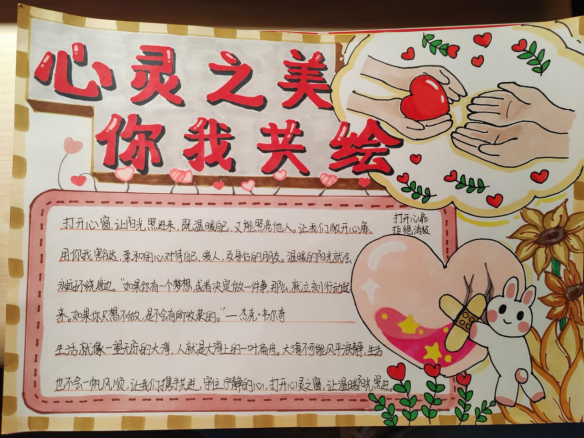 心灵之美
你我共绘
打开心扉
拒绝消极
打开心窗,让阳光照进来,既温暖自己,又能照亮他人。让我们敞开心扉
用你我善良、柔和的心对待自己、家人、及身边的朋友。温暖的阳光就会
永远环绕身边。"如果你有一个梦想,或者决定做一件事,那么,就立刻行动起
来。如果你只想不做,是不会有所收获的。"——杰克·韦尔奇
生活就像一望无际的大海,人就是大海上的一叶扁舟。大海不可能风平浪静,生活
也不会一帆风顺,让我们携手共进,守住宁静的心,打开心灵之窗,让温暖阳光照进